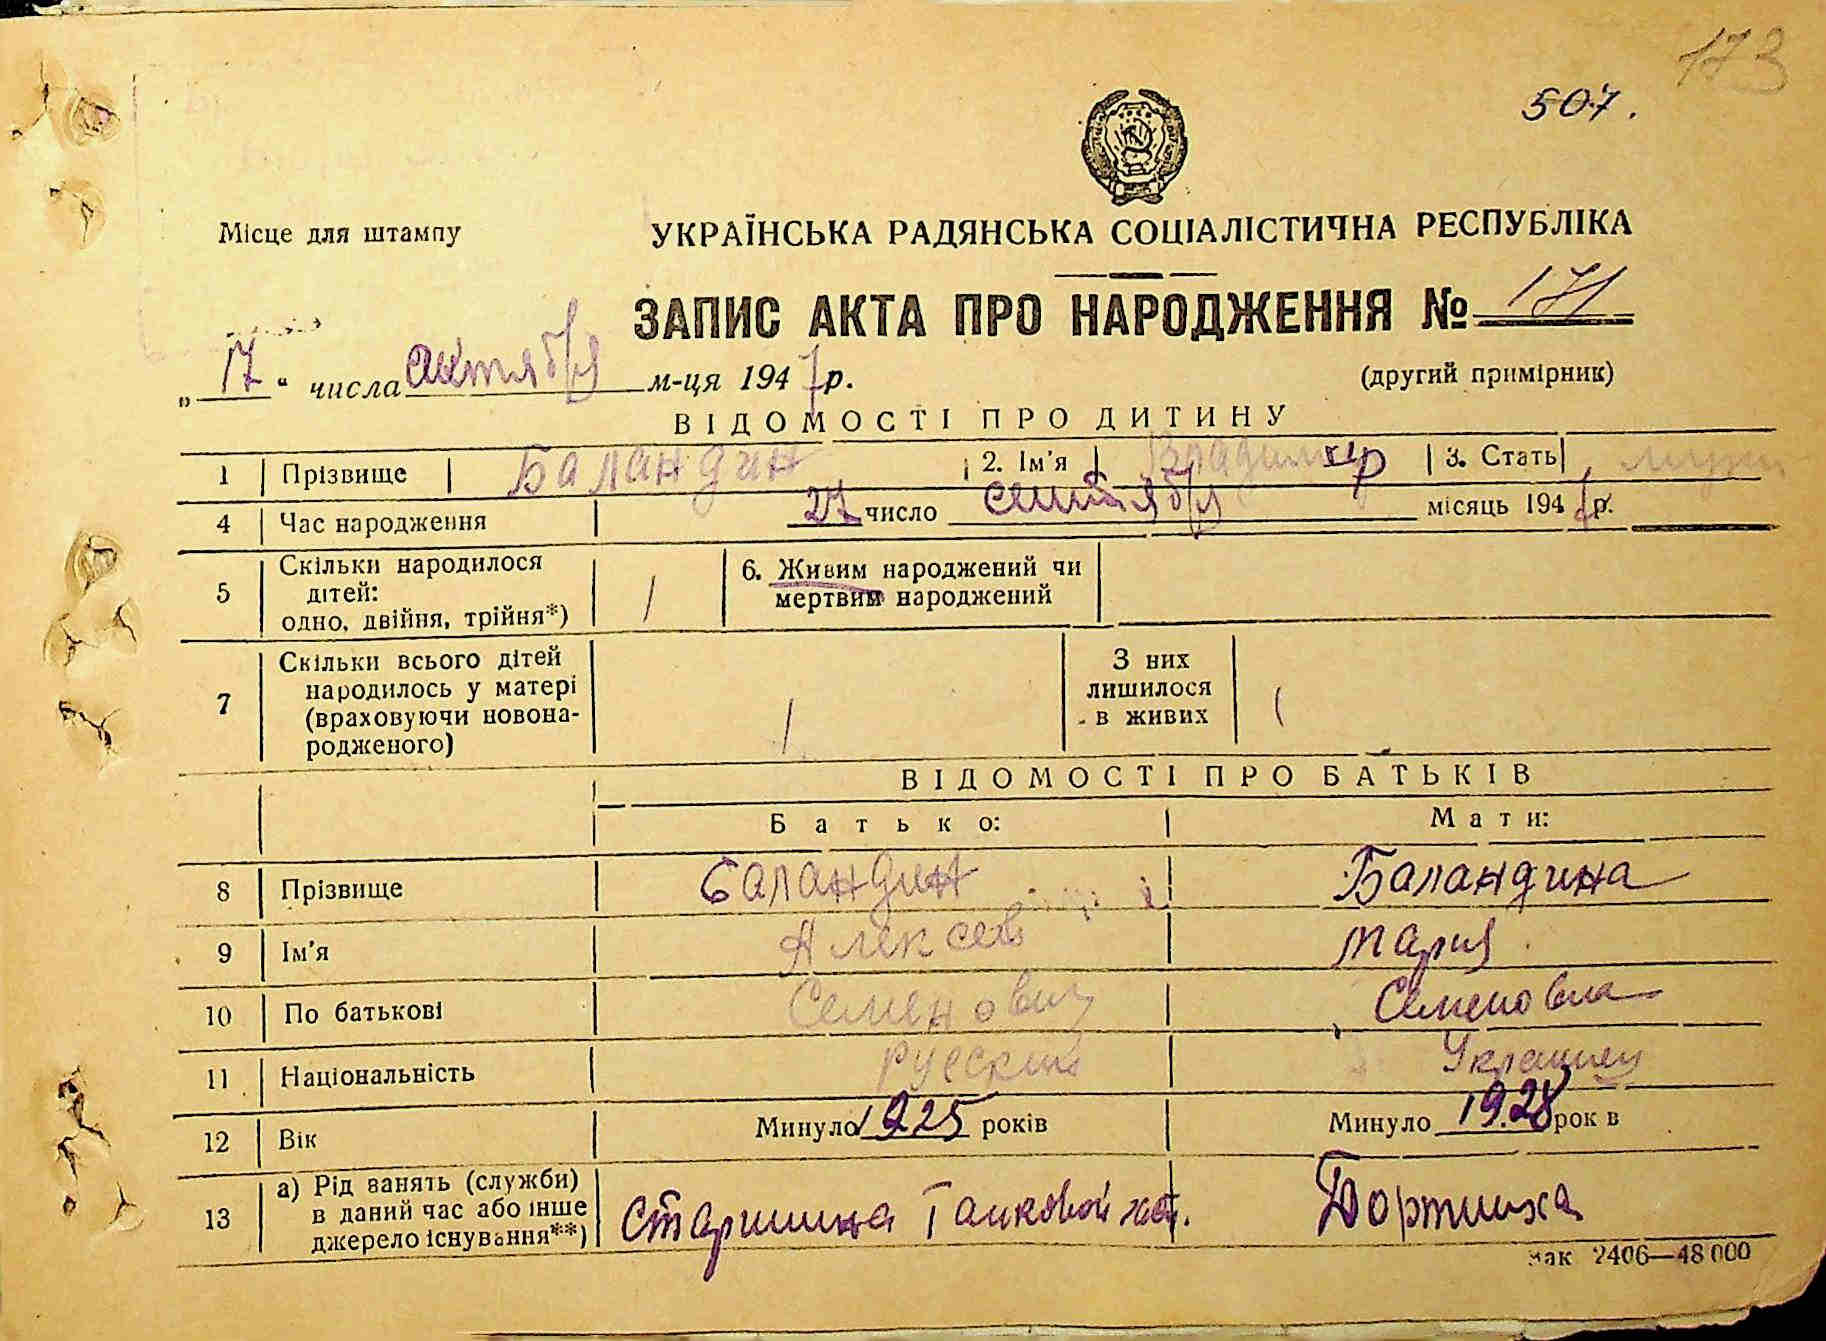 173
507.
Місце для штампу
УКРАЇНСЬКА РАДЯНСЬКА СОЦІАЛІСТИЧНА РЕСПУБЛІКА
ЗАПИС АКТА ПРО НАРОДЖЕННЯ № 171
„ 17 “ числа октября м-ця 1947 р.
(другий примірник)
ВІДОМОСТІ ПРО ДИТИНУ
1 Прізвище Баландин 2. Ім'я Владимир 3. Стать
4 Час народження 27 число сентября місяць 1947 р.
5 Скільки народилося дітей: одно, двійня, трійня*) 1 6. Живим народжений чи мертвим народжений
7 Скільки всього дітей народилось у матері (враховуючи новонародженого) 1 З них лишилося в живих 1
ВІДОМОСТІ ПРО БАТЬКІВ
Батько: Мати:
8 Прізвище Баландин Баландина
9 Ім'я Алексей Мария
10 По батькові Семенович Семеновна
11 Національність русский Украинец
12 Вік Минуло 1925 років Минуло 1928 рок в
13 а) Рід занять (служби) в даний час або інше джерело існування**) Старшина Танковой
зак 2406—48 000